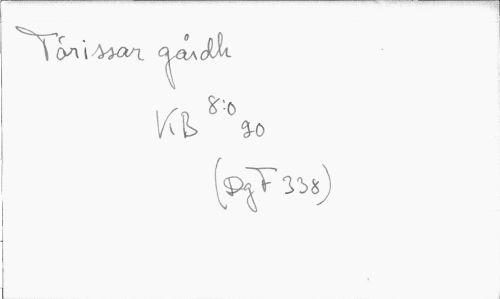 Törissar gårdh
KB 8:o 90
(DgF 338)